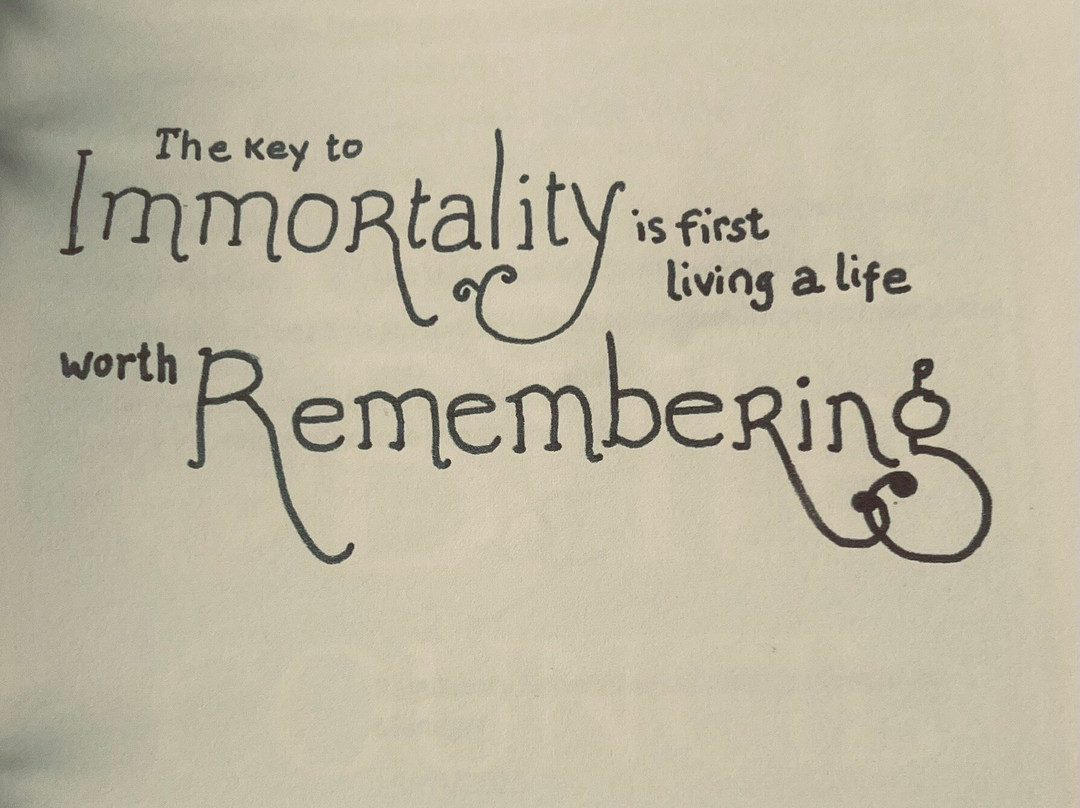 The Key to
Immortality is first
living a life
worth Remembering